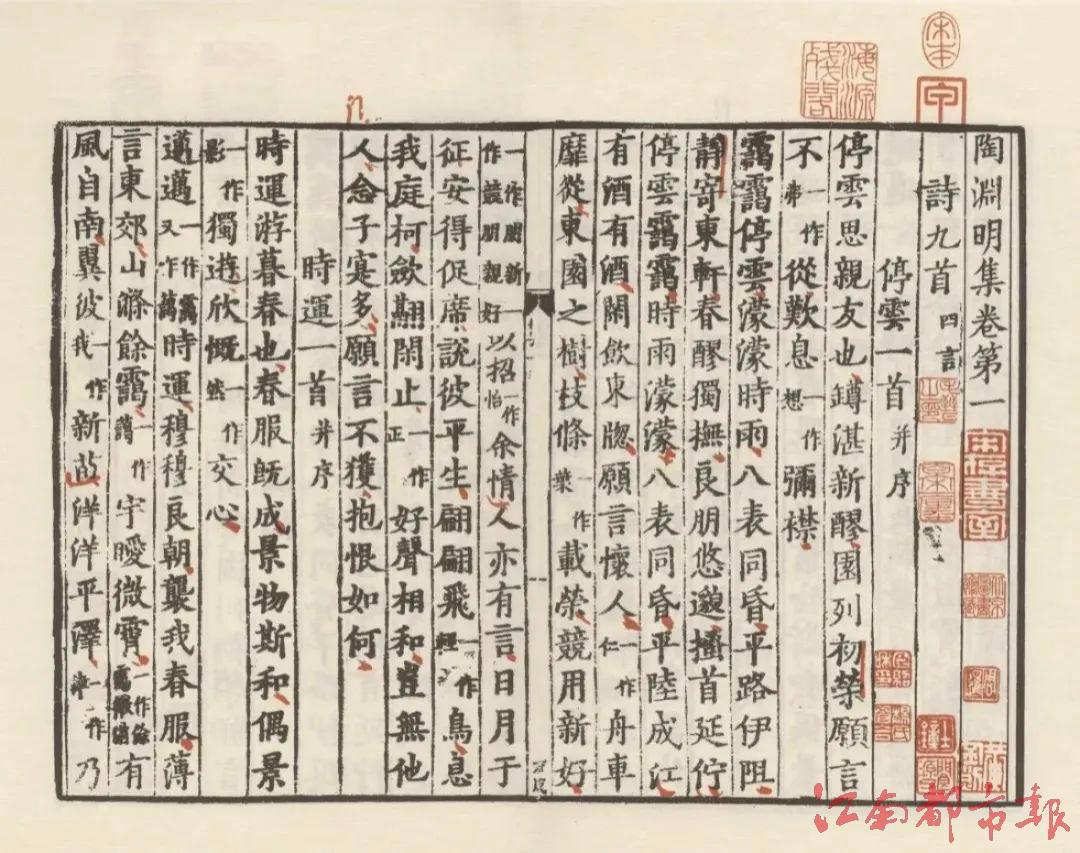 陶淵明集卷第一
詩九首 四言
停雲一首 并序
停雲思親友也罇湛新醪園列初榮願言
不一作弗從歎息一作想彌襟
靄靄停雲濛濛時雨八表同昏平路伊阻
靜寄東軒春醪獨撫良朋悠邈搔首延佇
停雲靄靄時雨濛濛八表同昏平陸成江
有酒有酒閑飲東牎願言懷人一作仁舟車
靡從東園之樹枝條一作葉載榮競用新好
一作朋新一作競朋親好以招一作怡余情人亦有言日月于
征安得促席說彼平生翩翩飛一作輕鳥息
我庭柯斂翮閑止一作正好聲相和豈無他
人念子寔多願言不獲抱恨如何
時運一首 并序
時運游暮春也春服旣成景物斯和偶景
一作影獨遊欣慨一作然交心
邁邁時運穆穆良朝襲我春服薄
言東郊山滌餘靄一作藹宇曖微霄有
風自南翼彼一作我新苗洋洋平澤一作津乃
宋本
海源殘閣
江南都市報